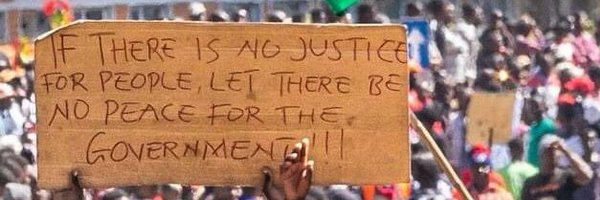 IF THERE IS NO JUSTICE
FOR PEOPLE, LET THERE BE
NO PEACE FOR THE
GOVERNMENT!!!